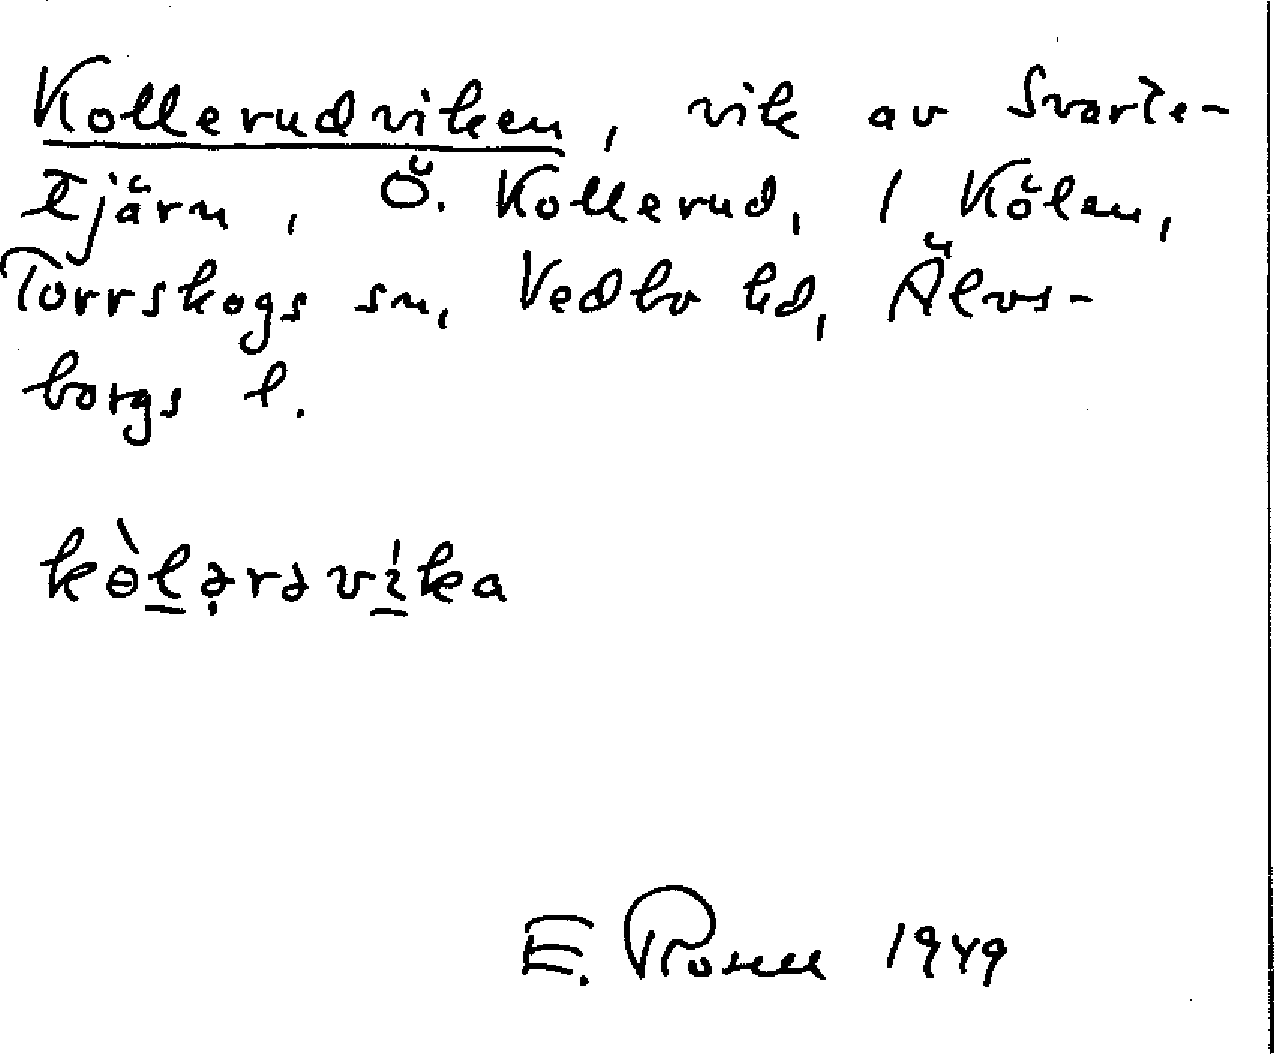 Kollerudviken, vik av Svarte-
tjärn, Ö. Kollerud, i Kölen,
Torrskogs sn, Vedbo hd, Älvs-
borgs l.
kɵ̀l̲ə̣rəví̲ka
E. Rosell 1949